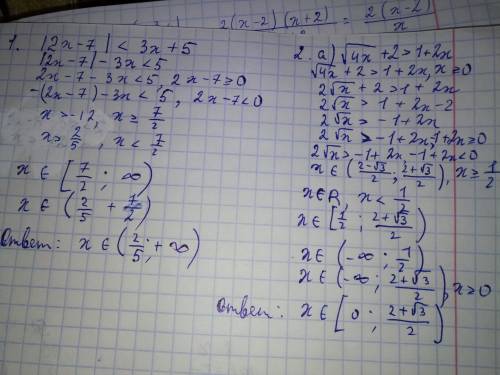 2(x-2)(x+2) = 2(x-2)/x
1. |2x-7| < 3x+5
|2x-7| - 3x < 5
2x-7-3x<5, 2x-7≥0
-(2x-7)-3x<5, 2x-7<0
x > -12, x ≥ 7/2
x > 2/5, x < 7/2
x ∈ [7/2 ; ∞)
x ∈ (2/5 + 7/2)
Ответ: x ∈ (2/5 ; +∞)
2. а) √4x + 2 > 1+2x
√4x + 2 > 1+2x, x ≥ 0
2√x + 2 > 1+2x
2√x > 1+2x-2
2√x > -1+2x
2√x > -1+2x, -1+2x ≥ 0
2√x > -1+2x, -1+2x < 0
x ∈ (2-√3/2 ; 2+√3/2), x ≥ 1/2
x ∈ R, x < 1/2
x ∈ [1/2 ; 2+√3/2)
x ∈ (-∞ ; 1/2)
x ∈ (-∞ ; 2+√3/2), x ≥ 0
Ответ: x ∈ [0 ; 2+√3/2)